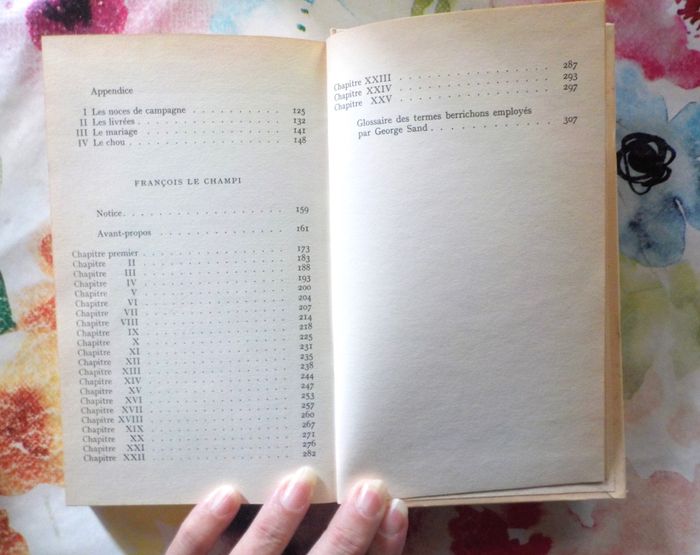 Appendice
I Les noces de campagne . . . . . . . . . . 125
II Les livrées . . . . . . . . . . . . . . . 132
III Le mariage . . . . . . . . . . . . . . . 141
IV Le chou . . . . . . . . . . . . . . . . 148
FRANÇOIS LE CHAMPI
Notice. . . . . . . . . . . . . . . . . . 159
Avant-propos . . . . . . . . . . . . . . 161
Chapitre premier . . . . . . . . . . . . . 173
Chapitre II . . . . . . . . . . . . . . . 183
Chapitre III . . . . . . . . . . . . . . . 188
Chapitre IV . . . . . . . . . . . . . . . 193
Chapitre V . . . . . . . . . . . . . . . 200
Chapitre VI . . . . . . . . . . . . . . . 204
Chapitre VII . . . . . . . . . . . . . . . 207
Chapitre VIII . . . . . . . . . . . . . . . 214
Chapitre IX . . . . . . . . . . . . . . . 218
Chapitre X . . . . . . . . . . . . . . . 225
Chapitre XI . . . . . . . . . . . . . . . 231
Chapitre XII . . . . . . . . . . . . . . . 235
Chapitre XIII . . . . . . . . . . . . . . . 238
Chapitre XIV . . . . . . . . . . . . . . . 244
Chapitre XV . . . . . . . . . . . . . . . 247
Chapitre XVI . . . . . . . . . . . . . . . 253
Chapitre XVII . . . . . . . . . . . . . . . 257
Chapitre XVIII . . . . . . . . . . . . . . . 260
Chapitre XIX . . . . . . . . . . . . . . . 267
Chapitre XX . . . . . . . . . . . . . . . 271
Chapitre XXI . . . . . . . . . . . . . . . 276
Chapitre XXII . . . . . . . . . . . . . . . 282
Chapitre XXIII . . . . . . . . . . . . . . . 287
Chapitre XXIV . . . . . . . . . . . . . . . 293
Chapitre XXV . . . . . . . . . . . . . . . 297
Glossaire des termes berrichons employés
par George Sand . . . . . . . . . . . . 307